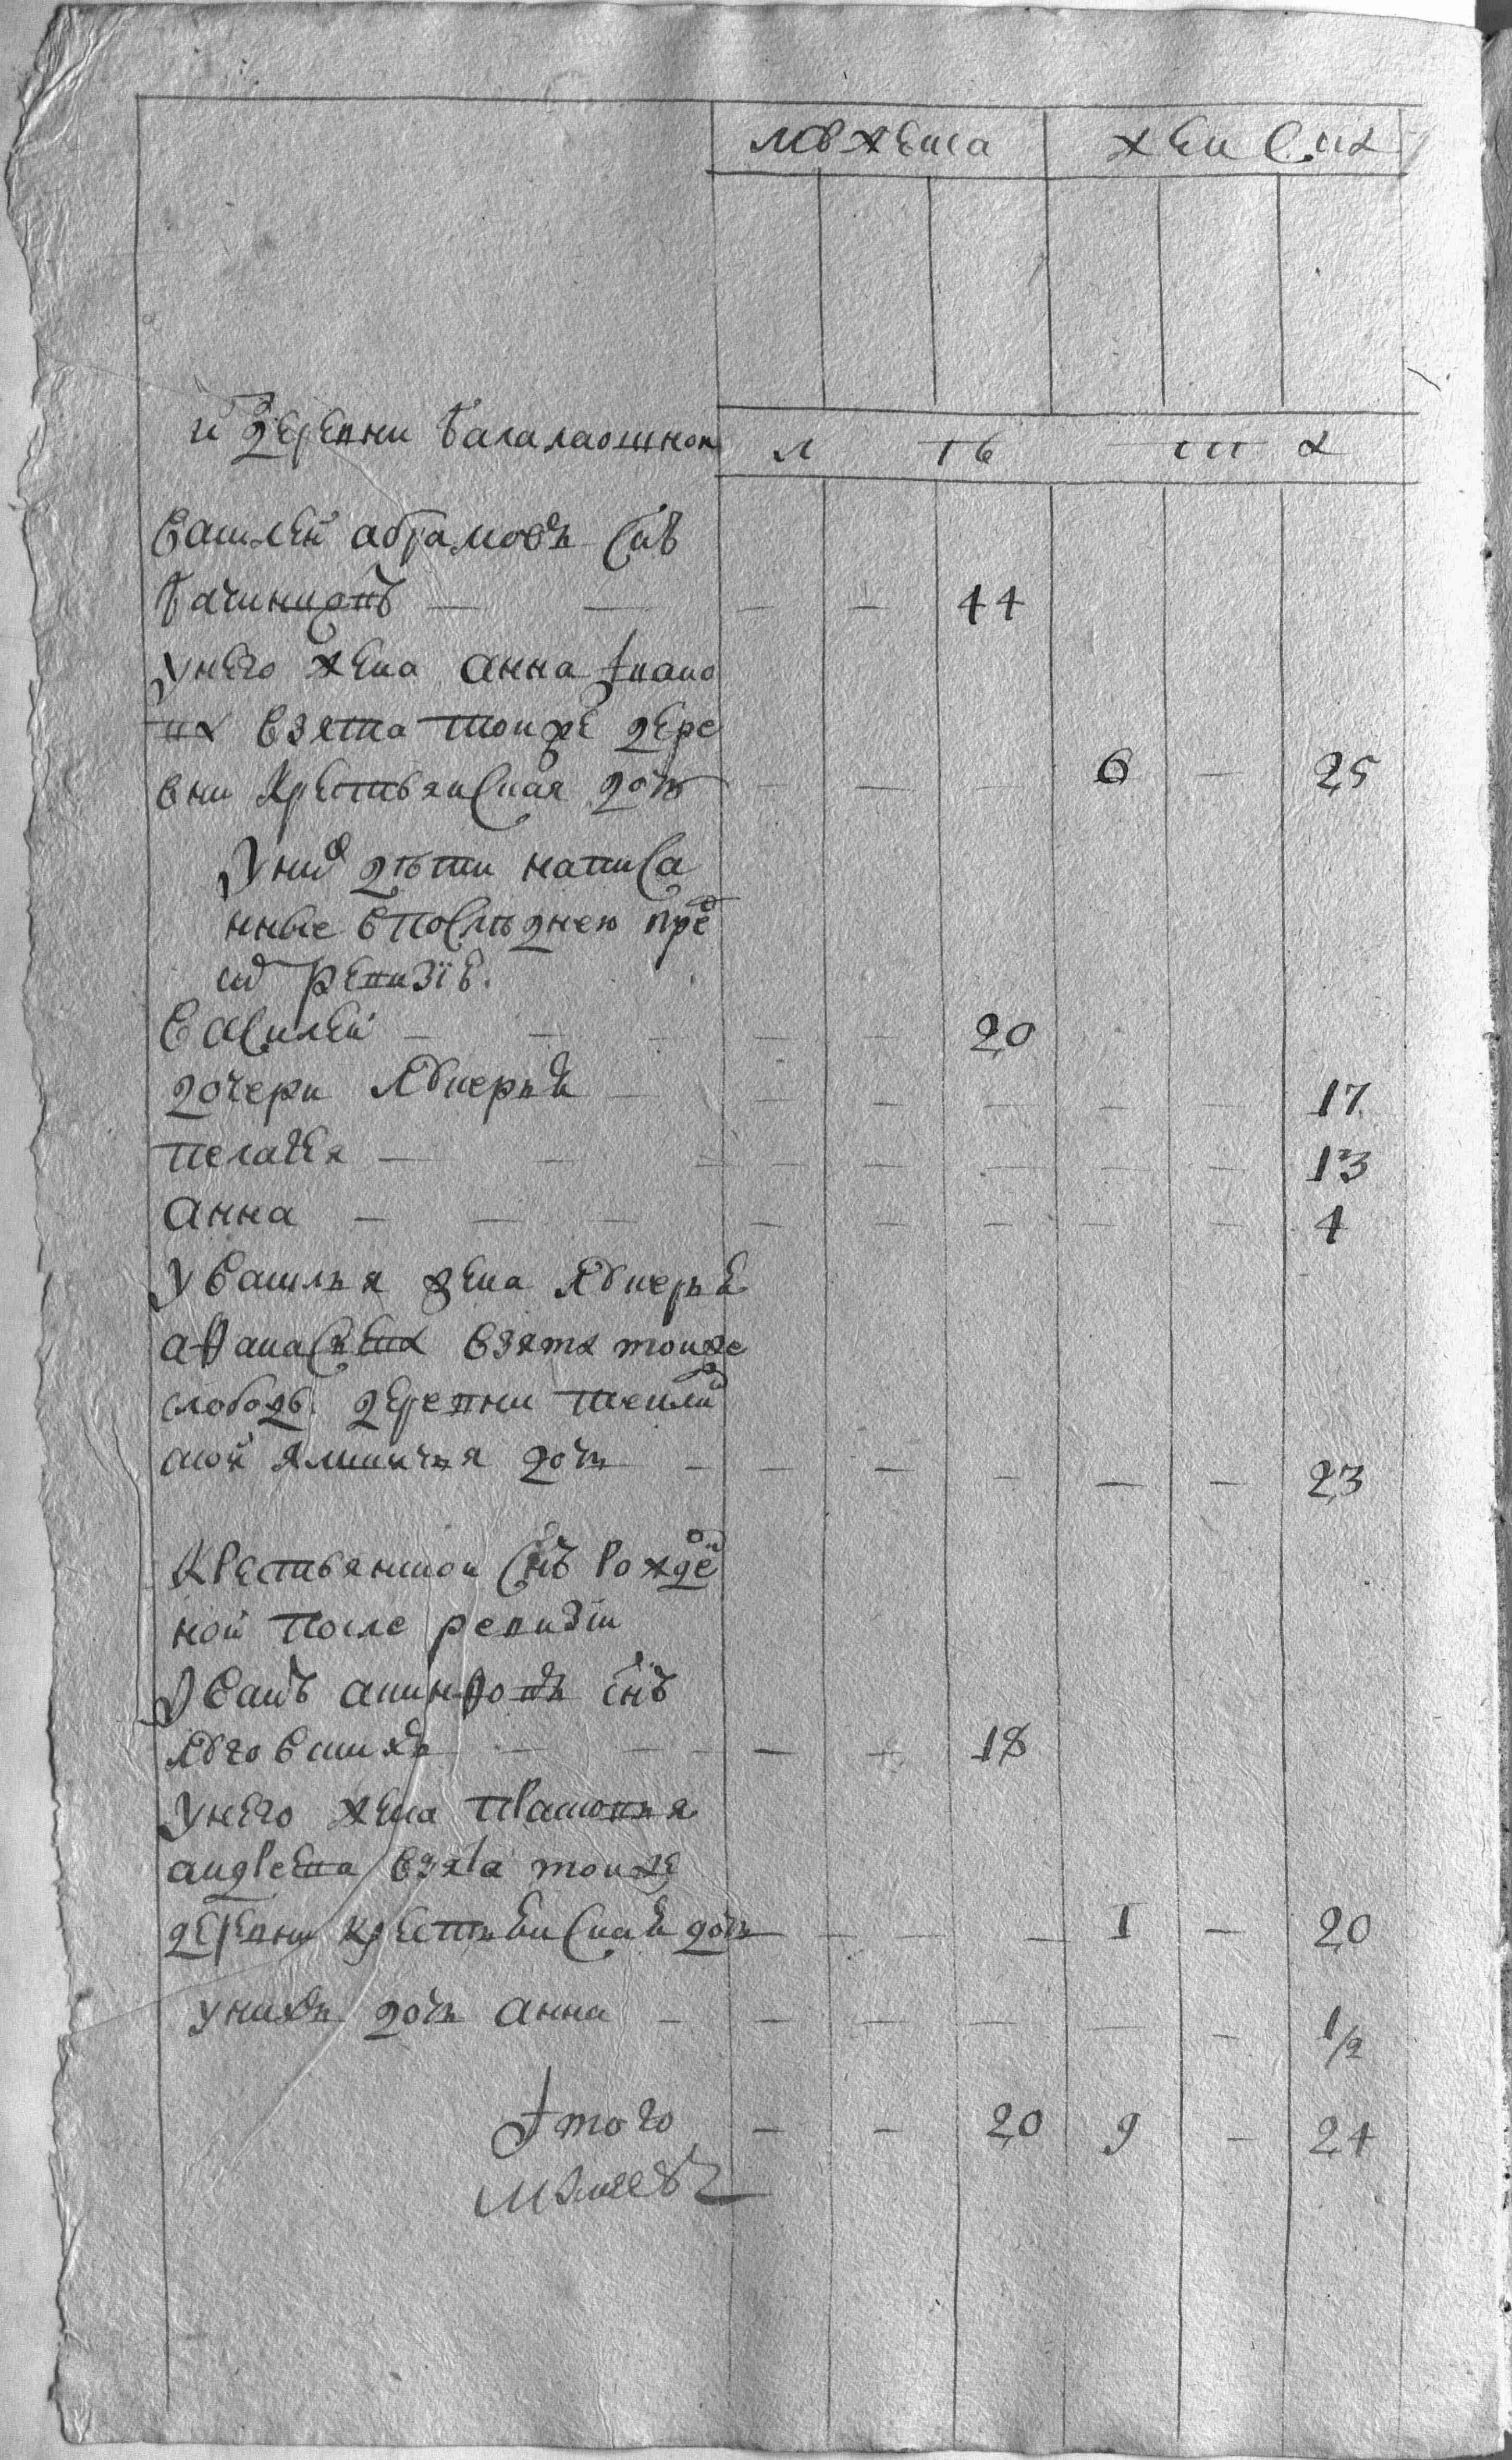 мужеска женска
и деревни Балалаошной
л ть ст а
василей абрамовъ снъ
Бачининовъ 44
унего жена анна ивано
ва взята тоиже дере
вни Крестьянская доч 6 25
Уних дѣти написа
нные впоследнею пре
ревизїе.
василей 20
дочери Явдокеря 17
пелагея 13
анна 4
у василья жена
афанасьева взята тоиже
слободы деревни
ямщичья дочь 23
Крестьянской снъ рожде
ной после ревизїи
Иванъ снъ
18
унего жена прасковья
андреева взята тоиже
деревни крестьянская дочь 1 20
унихъ дочь анна 1/2
Итого 20 9 24